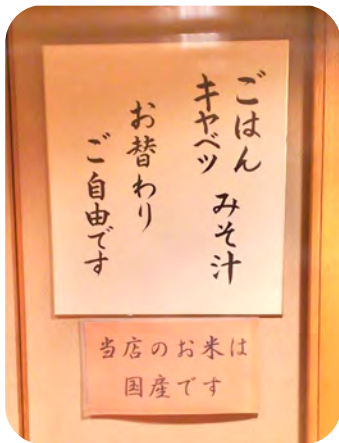 ごはん
キャベツ
みそ汁
お替わり
ご自由です
当店のお米は
国産です